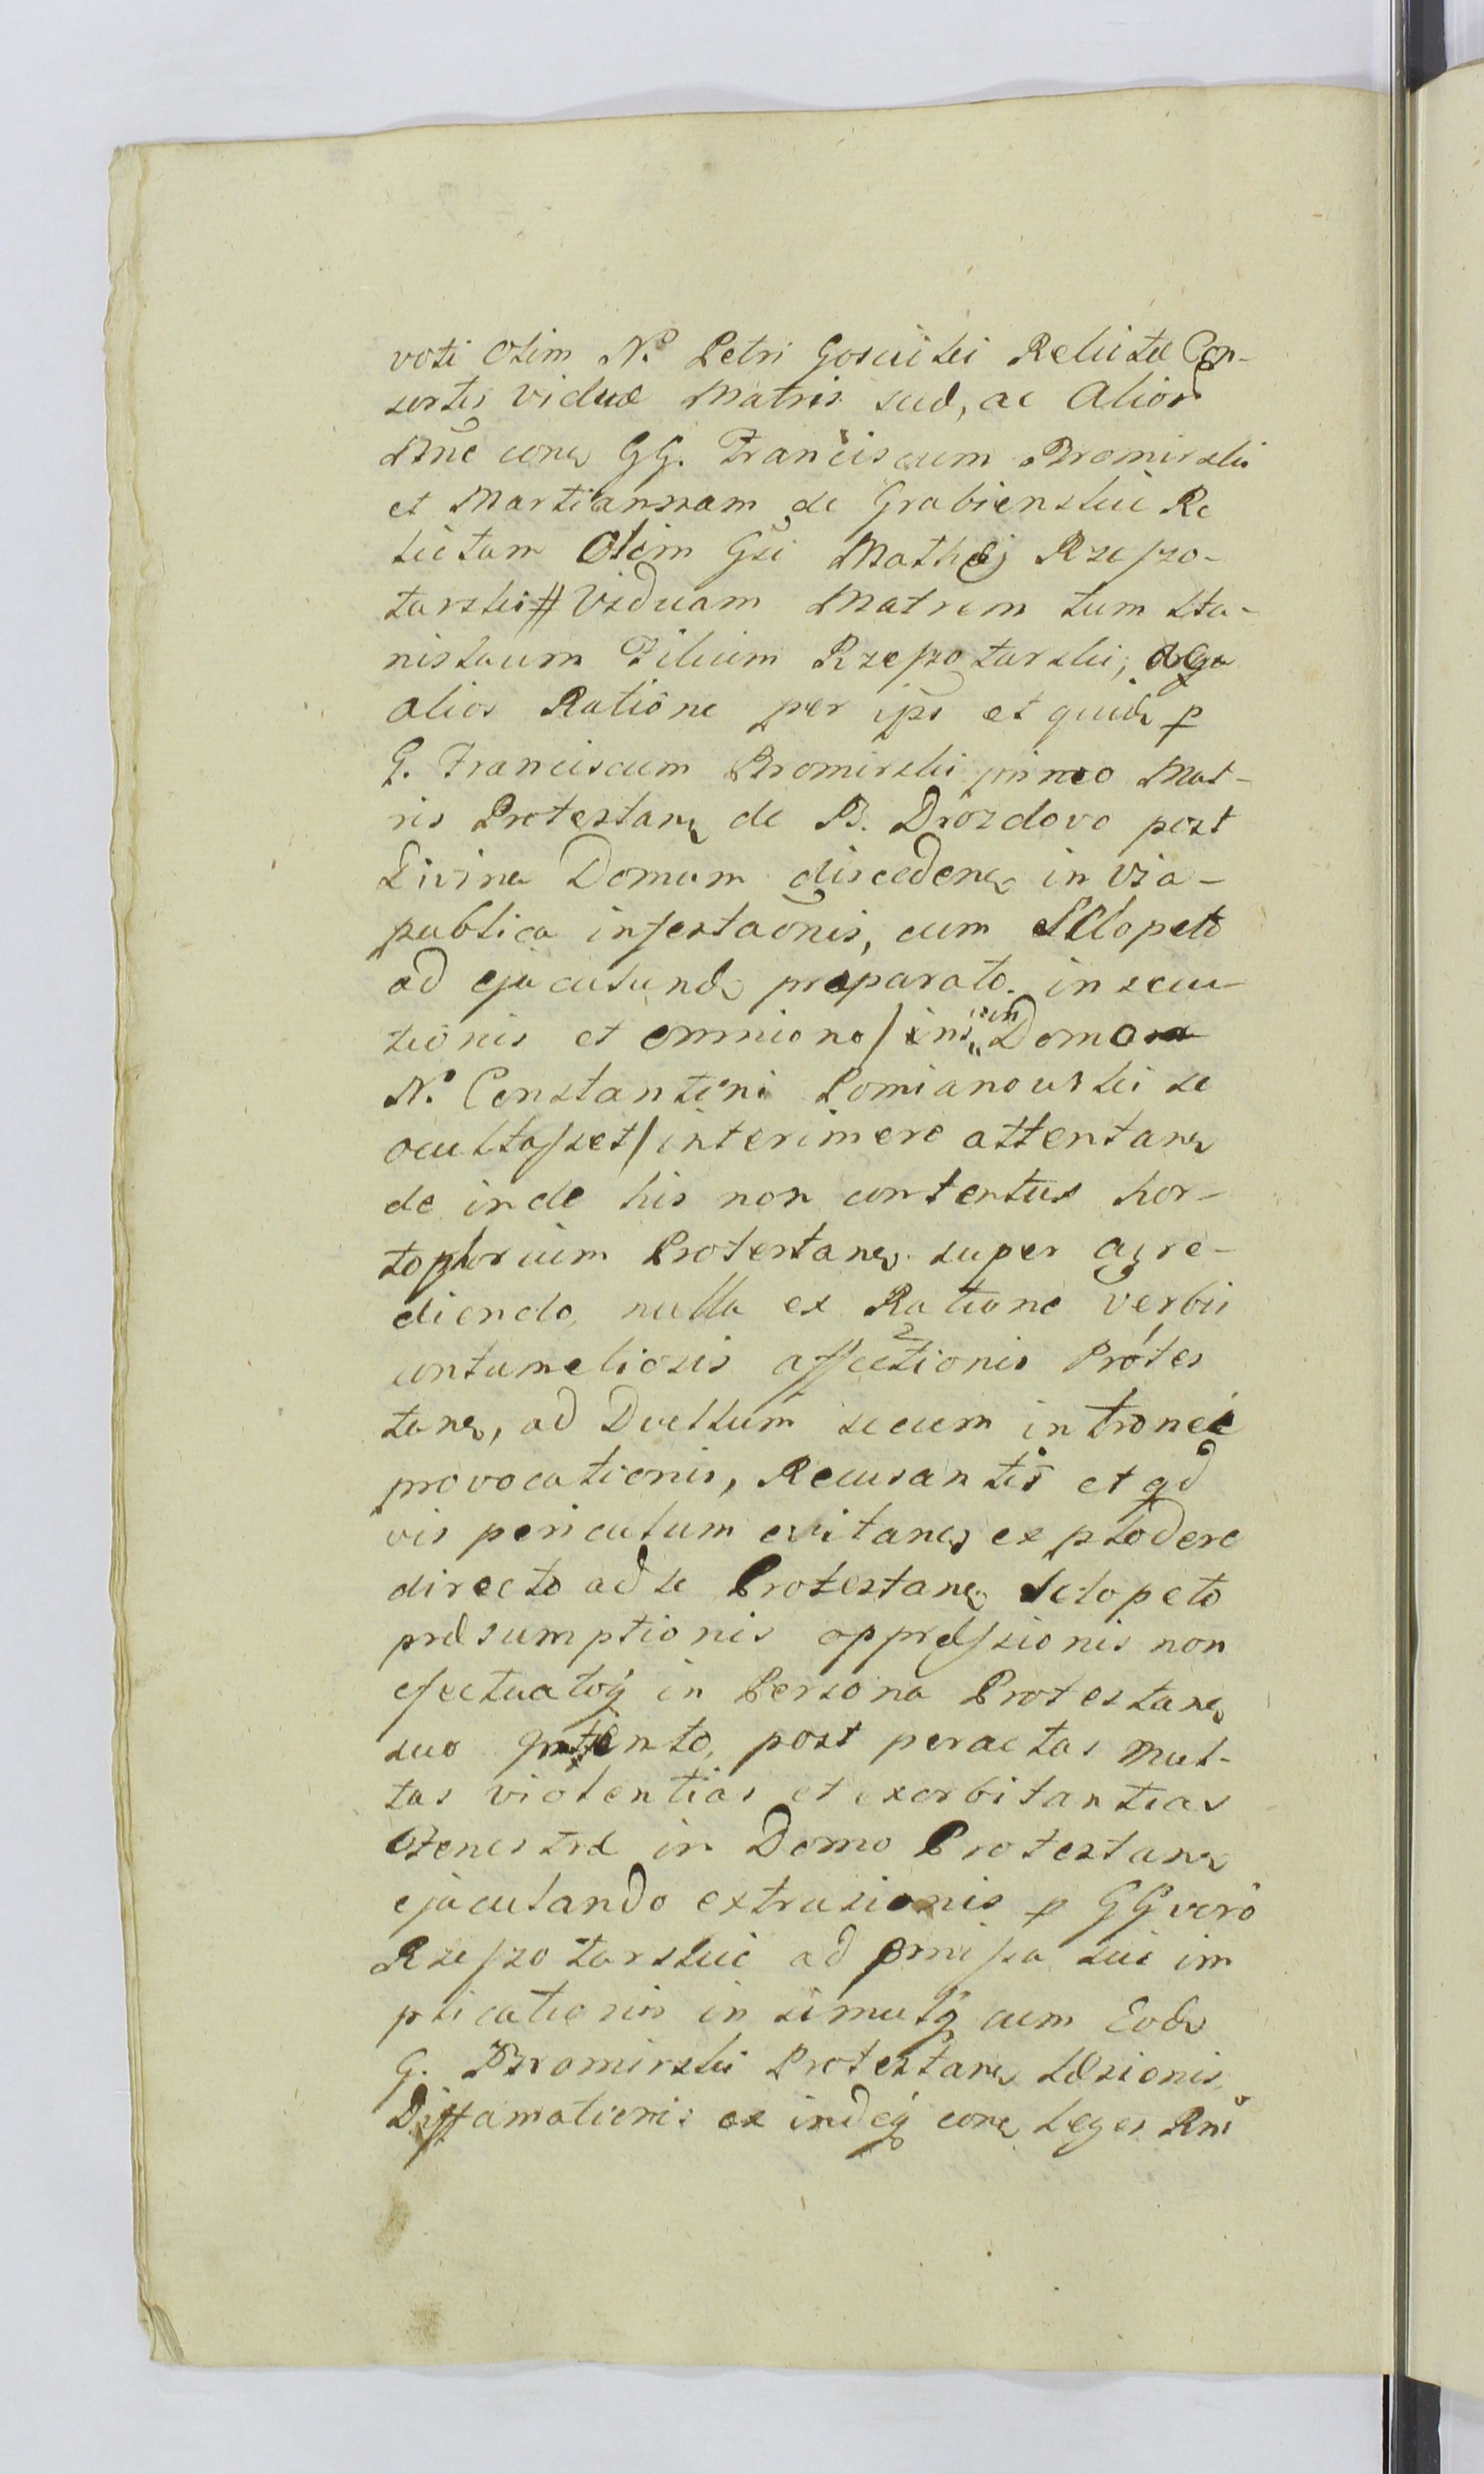 voti olim N. Petri Goscicki Relictæ Con-
sortis Viduæ Matris suæ, ac Alior
Nne conꝫ GG. Franciscum Bromirski
et Martiannam de Grabienskie Re
lictam Olim Gsi Mathæj Rzeszo-
tarski # Viduam Matrem tum Sta-
nislaum Filium Rzeszotarski,
alios Ratione per ips et quidꝫ p
G. Franciscum Bromirski primo Mat-
ris Protestanꝫ de B. Drozdovo post
Divina Domum discedenꝫ in via-
publica infestaonis, cum Sclopeto
ad ejaculandꝫ præparato insecu-
tionis et omnino / in Domo
N. Constantini Pomianowski se
ocultasset / interimere attentanꝫ
de inde his non contentus hor-
Protestanꝫ super agre-
diendo, nulla ex Ratione verbis
contumeliosis affectionis Protes
tanꝫ, ad Duellum secum
provocationis, Recusantis et qd
vis periculum evitanꝫ explodere
directo ad se Protestanꝫ Sclopeto
præsumptionis oppressionis non
efectuatoq in Persona Protestanꝫ
suo intento, post peractas mul-
tas violentias et exorbitantias
Fenestræ in Domo Protestanꝫ
ejaculando extrusionis p GG vero
Rzeszotarskie ad pmissa sui im
plicationis in simulq cum Eodꝫ
G. Bromirski Protestanꝫ læsionis
Diffamationis ex indeq conꝫ Leges Rni